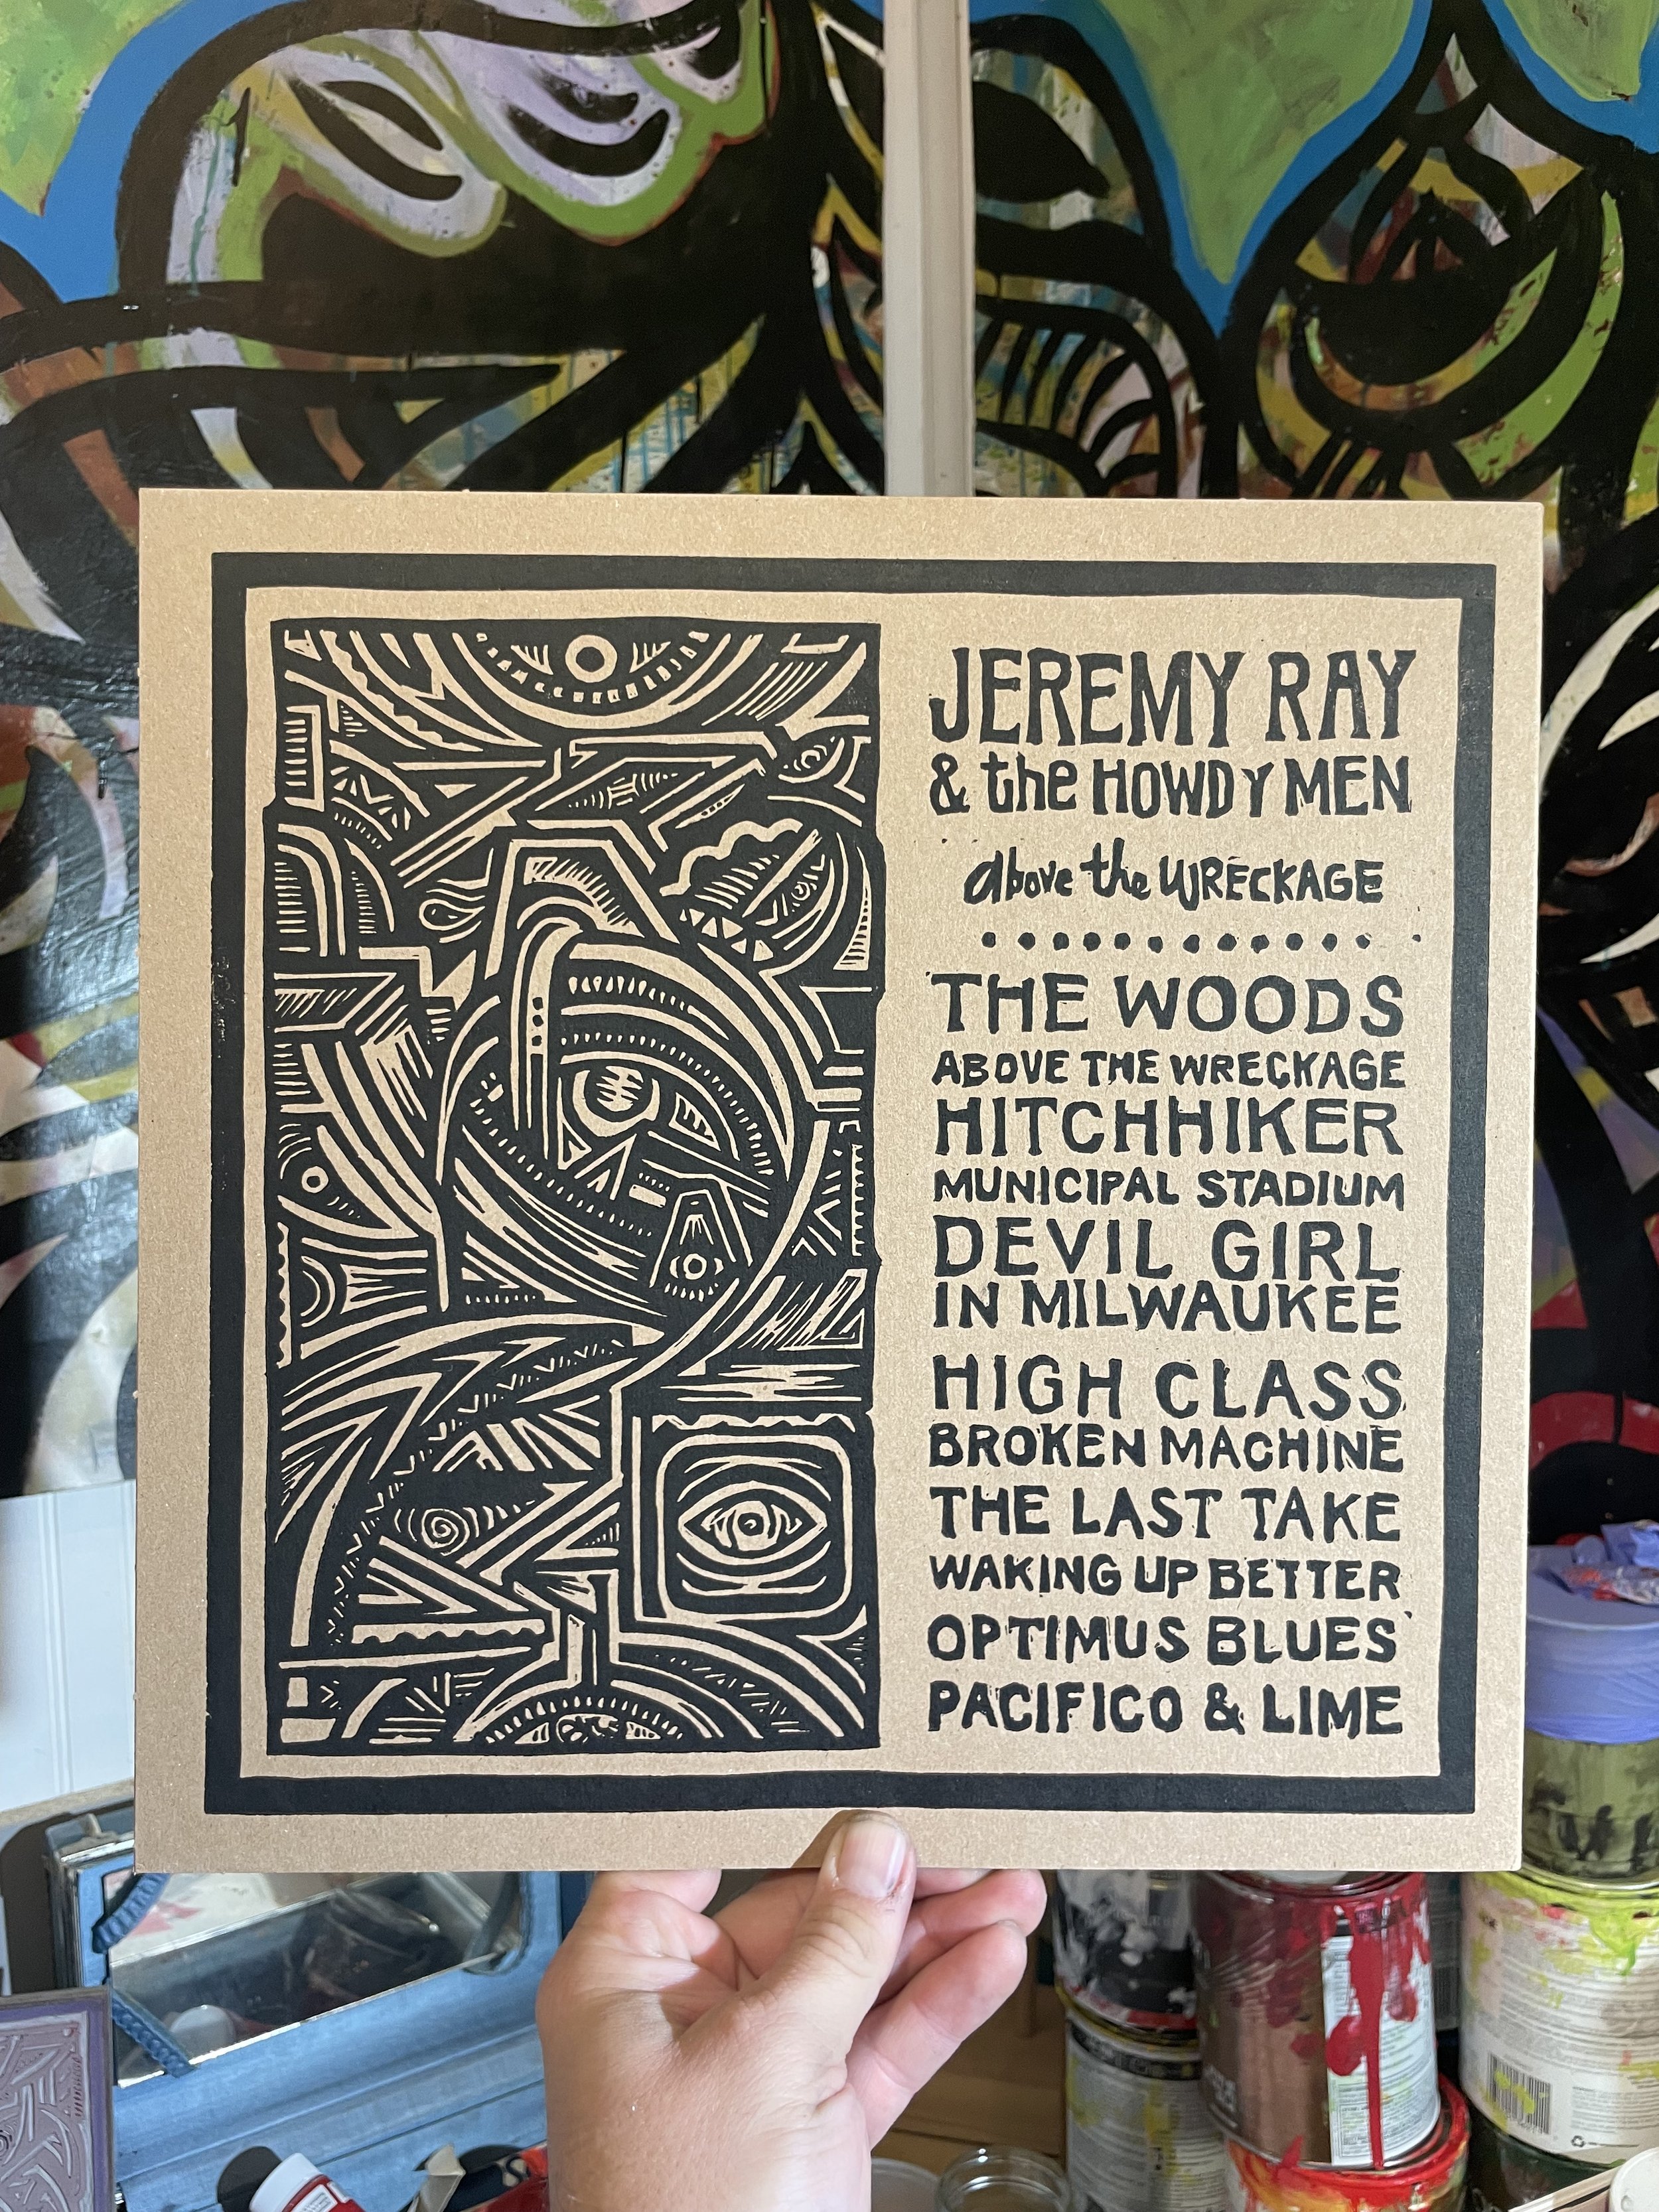 JEREMY RAY
& the HOWDY MEN
above the WRECKAGE
THE WOODS
ABOVE THE WRECKAGE
HITCHHIKER
MUNICIPAL STADIUM
DEVIL GIRL
IN MILWAUKEE
HIGH CLASS
BROKEN MACHINE
THE LAST TAKE
WAKING UP BETTER
OPTIMUS BLUES
PACIFICO & LIME